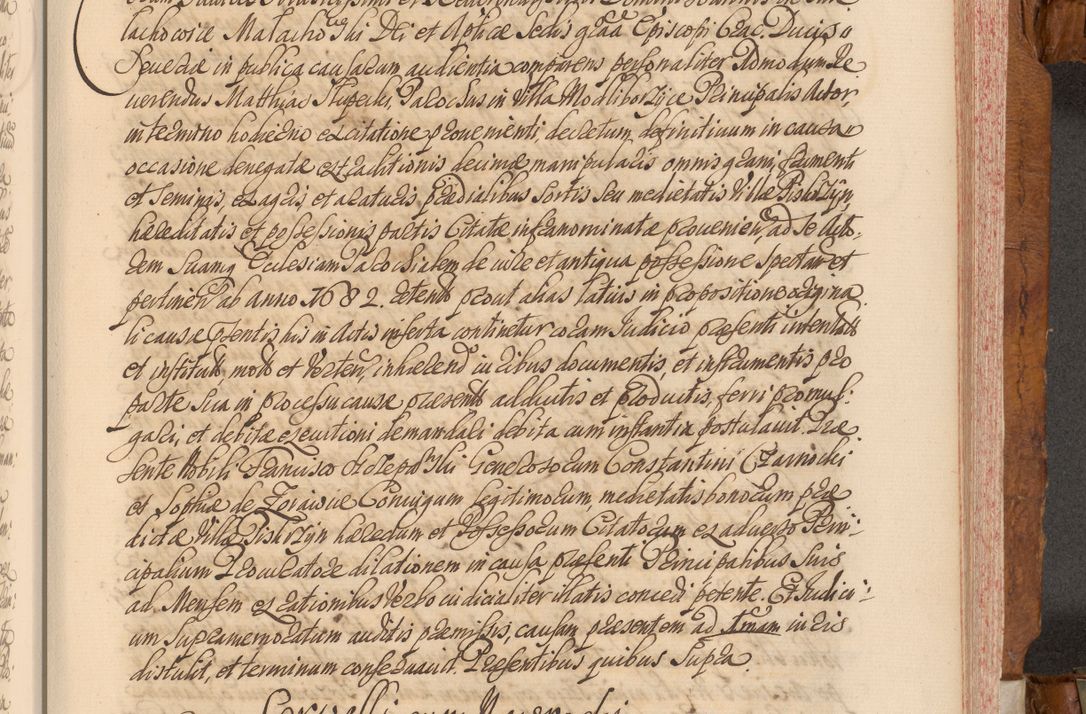 lachocice Malachoski Dei et Aplicae Sedis graa Episcopi Crac: Ducis
Severiae in publica causarum audientia comparens personaliter Admodum Re
verendus Matthias Słupecki, Parochus in Villa Modliborzÿce Principalis Actor,
in termino hodierno ex citatione provenienti, decretum definitivum in causa
occasione denegatae extraditionis decimae manipularis omnis grani, frumenti
et seminis, ex agris et araturis praedialibus sortis seu medietatis Villae Piskrzÿn,
haereditatis et possessionis partis Citatae infranominatae provenien, ad se Acto
rem suamq Ecclesiam Parochialem de iure et antiqua possessione spectan et
pertinen ab anno 1682 retent, prout alias latius in propositione origina
li causae psentis his in Actis inserta continetur coram Iudicio praesenti intentat
et institut, mot et verten, inhaerend iuribus documentis, et instrumentis pro
parte sua in processu causae praesentis adductis et productis, ferri promul:
gari, et debitae executioni demandari debita cum instantia postulavit. Prae
sente Nobili Francisco Generosorum Constantini Czarnocki
et Sophiae de Coniugum legitimorum, medietatis bonorum prae
dictae Villae Piskrzÿn haeredum et Possessorum Citatorum ex adverso Prin:
cipalium Procuratore dilationem in causa praesenti Principalibus suis
ad Mensem ex rationibus verbo iudicialiter illatis concedi petente. Et Iudici:
um supramemoratum auditis praemissis, causam praesentem ad Imam iuris
distulit, et terminum conservavit. Praesentibus quibus supra.